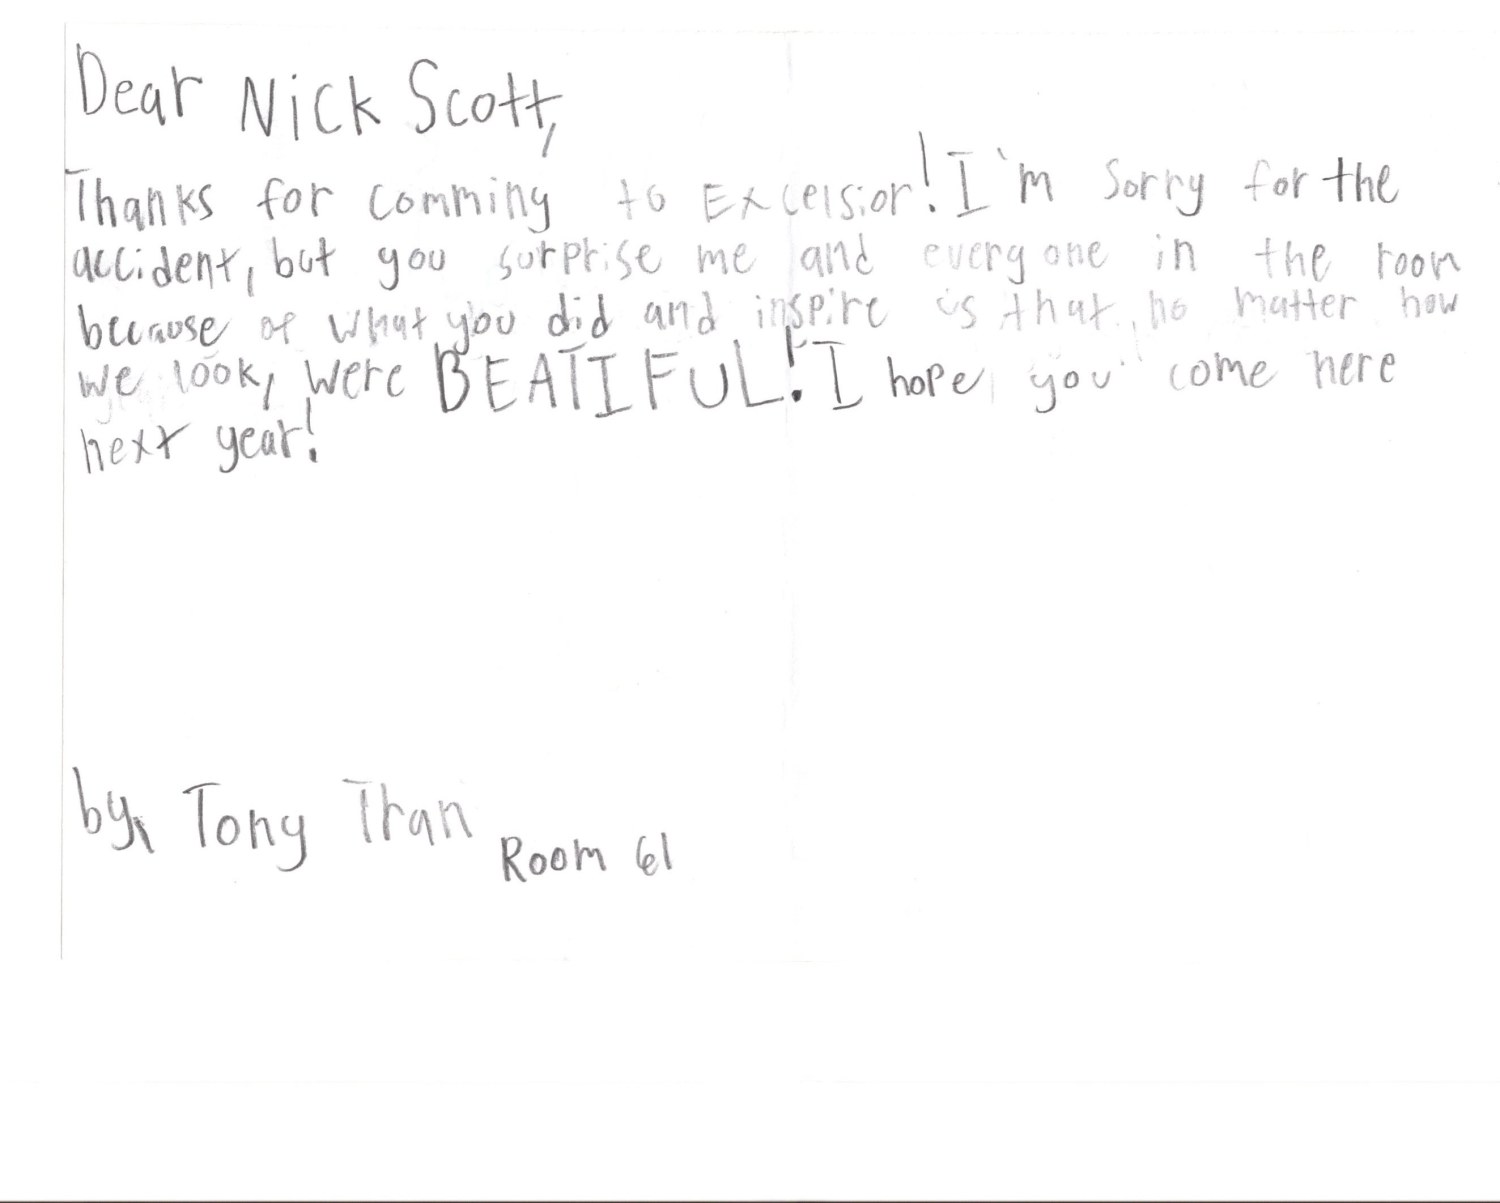 Dear Nick Scott,
Thanks for comming to Excelsior! I'm sorry for the
accident, but you surprise me and everyone in the room
because of what you did and inspire us that no matter how
we look, were BEATIFUL! I hope you come here
next year!
by, Tony Tran
Room 61